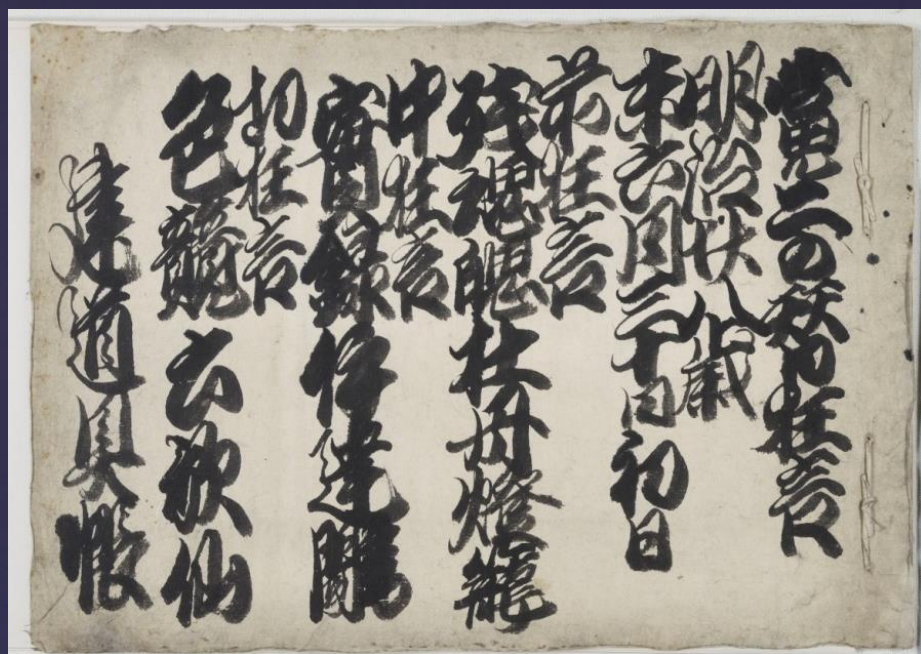 二の替り狂言
明治廿八歳
未六月三十日初日
前狂言
残魂魄牡丹燈籠
中狂言
實録伊達
切狂言
色競六歌仙
建道具帳